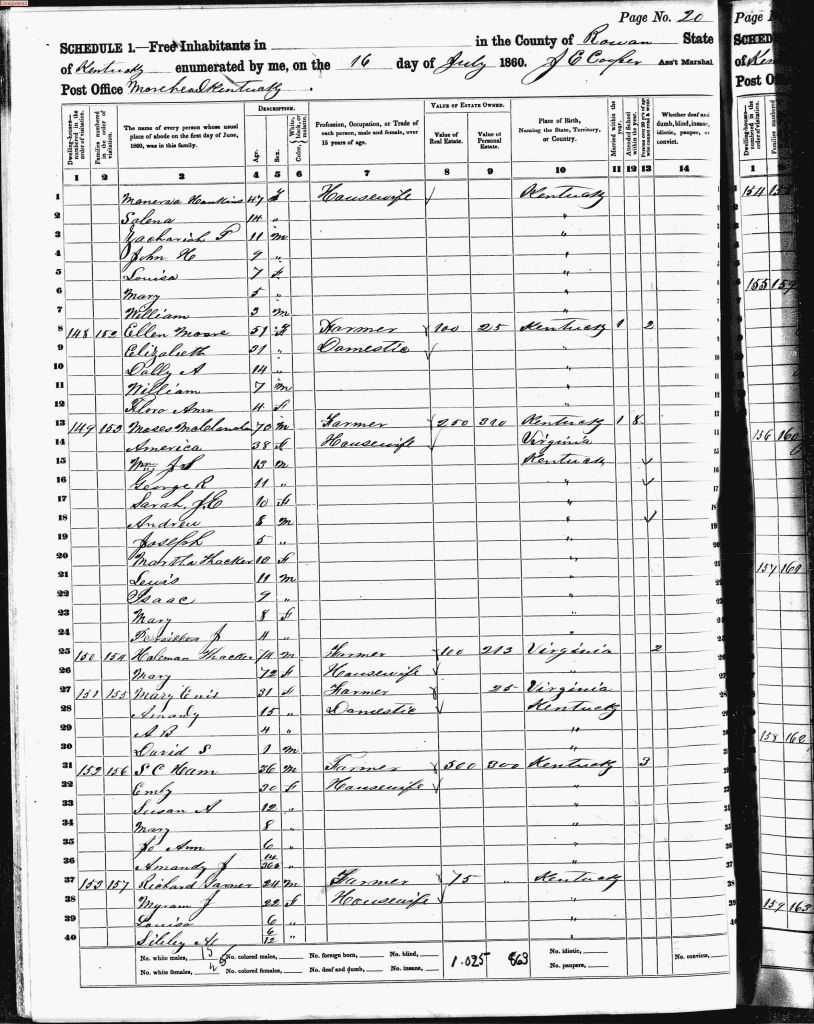 Page No. 20
SCHEDULE 1.—Free Inhabitants in in the County of Rowan State
of Kentucky enumerated by me, on the 16 day of July 1860. J E Cooper Ass't Marshal
Post Office Morehead Kentucky.
DESCRIPTION. VALUE OF ESTATE OWNED.
Dwelling-houses—numbered in the order of visitation. Families numbered in the order of visitation. The name of every person whose usual place of abode on the first day of June, 1860, was in this family. Age. Sex. Color, White, black, or mulatto. Profession, Occupation, or Trade of each person, male and female, over 15 years of age. Value of Real Estate. Value of Personal Estate. Place of Birth, Naming the State, Territory, or Country. Married within the year. Attended School within the year. Persons over 20 y'rs of age who cannot read & write. Whether deaf and dumb, blind, insane, idiotic, pauper, or convict.
1 2 3 4 5 6 7 8 9 10 11 12 13 14
1 Manerva Hankins 47 f Housewife Kentucky 1
2 Salena 14 " " 2
3 Zachariah F 11 m " 3
4 John H 9 " " 4
5 Louisa 7 f " 5
6 Mary 5 " " 6
7 William 3 m " 7
8 148 152 Ellen Moore 51 f Farmer 100 25 Kentucky 1 2 8
9 Elizabeth 21 " Domestic " 9
10 Dolly A 14 " " 10
11 William 7 m " 11
12 Ann 4 f " 12
13 149 153 Moses 70 m Farmer 250 Kentucky 1 8 13
14 America 38 f Housewife Virginia 14
15 Wm J S 13 m Kentucky 15
16 George R 11 " " 16
17 Sarah J E 10 f " 17
18 Andrew 8 m " 18
19 Joseph 5 " " 19
20 Martha Thacker 10 f " 20
21 Lewis 11 m " 21
22 Isaac 9 " " 22
23 Mary 8 f " 23
24 J 4 " " 24
25 150 154 Holeman Thacker 74 m Farmer 100 213 Virginia 2 25
26 Mary 72 f Housewife " 26
27 151 155 Mary Enis 31 f Farmer 25 Virginia 27
28 Amandy 15 " Domestic Kentucky 28
29 A B 4 " " 29
30 David S 1 m " 30
31 152 156 S C Ham 36 m Farmer 500 300 Kentucky 3 31
32 Emly 30 f Housewife " 32
33 Susan A 12 " " 33
34 Mary 8 " " 34
35 Jo Ann 6 " " 35
36 Amandy J " " 36
37 153 157 Richard 24 m Farmer 75 " Kentucky 37
38 Myram J 22 f Housewife " 38
39 Louisa 6 " " 39
40 6/12 " " 40
No. white males, 15 No. colored males, No. foreign born, No. blind, 1.025 863 No. idiotic, No. convicts,
No. white females, No. colored females, No. deaf and dumb, No. insane, No. paupers,
Page N
SCHED
of Ken
Post Offi
1
154
155 159
156 160
157 160
158 162
159 163